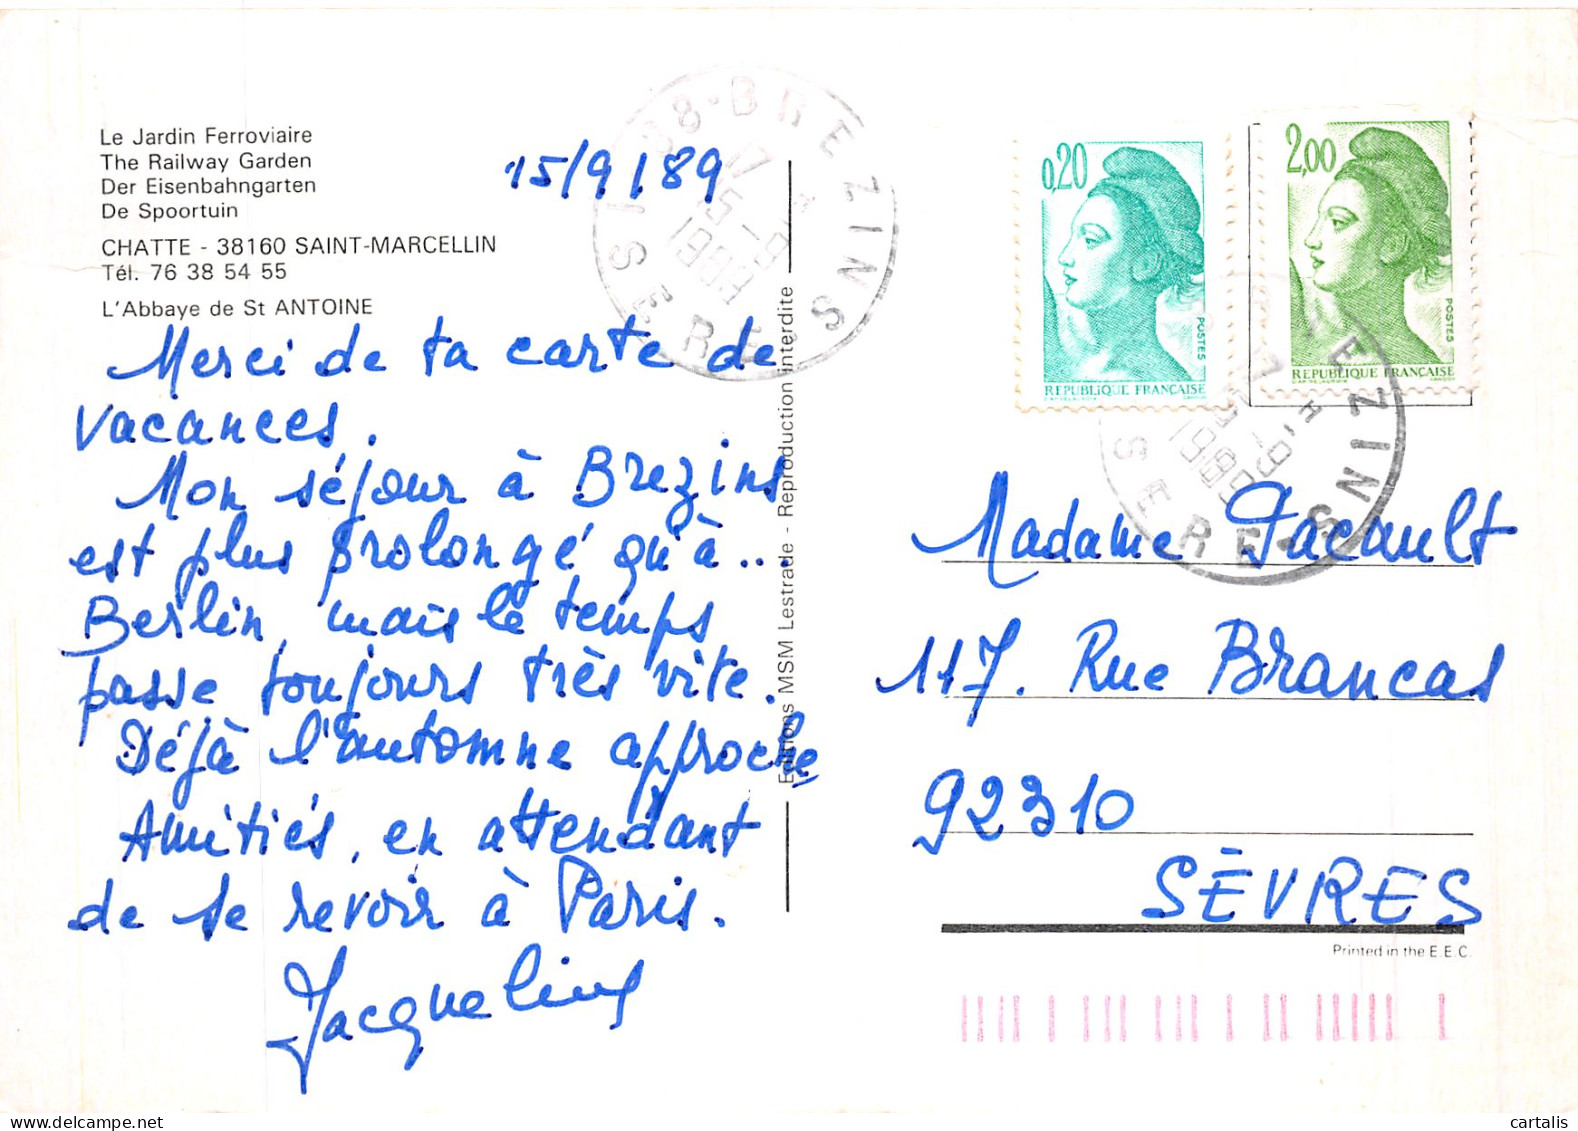 Le Jardin Ferroviaire
The Railway Garden
Der Eisenbahngarten
De Spoortuin
CHATTE - 38160 SAINT-MARCELLIN
Tél. 76 38 54 55
L'Abbaye de St ANTOINE
15/9/89
Merci de ta carte de
vacances.
Mon séjour à Brezins
est plus prolongé qu'à...
Berlin, mais le temps
passe toujours très vite.
Déjà l'automne approche
Amitiés, en attendant
de se revoir à Paris.
Jacqueline
Editions MSM Lestrade - Reproduction interdite
38-BREZINS
17 H
15-9
1989
ISERE
0,20
POSTES
REPUBLIQUE FRANÇAISE
2,00
POSTES
REPUBLIQUE FRANÇAISE
BREZINS
17 H
15-9
1989
ISERE
Madame Pacault
117. Rue Brancas
92310
SÈVRES
Printed in the E.E.C.
cartalis